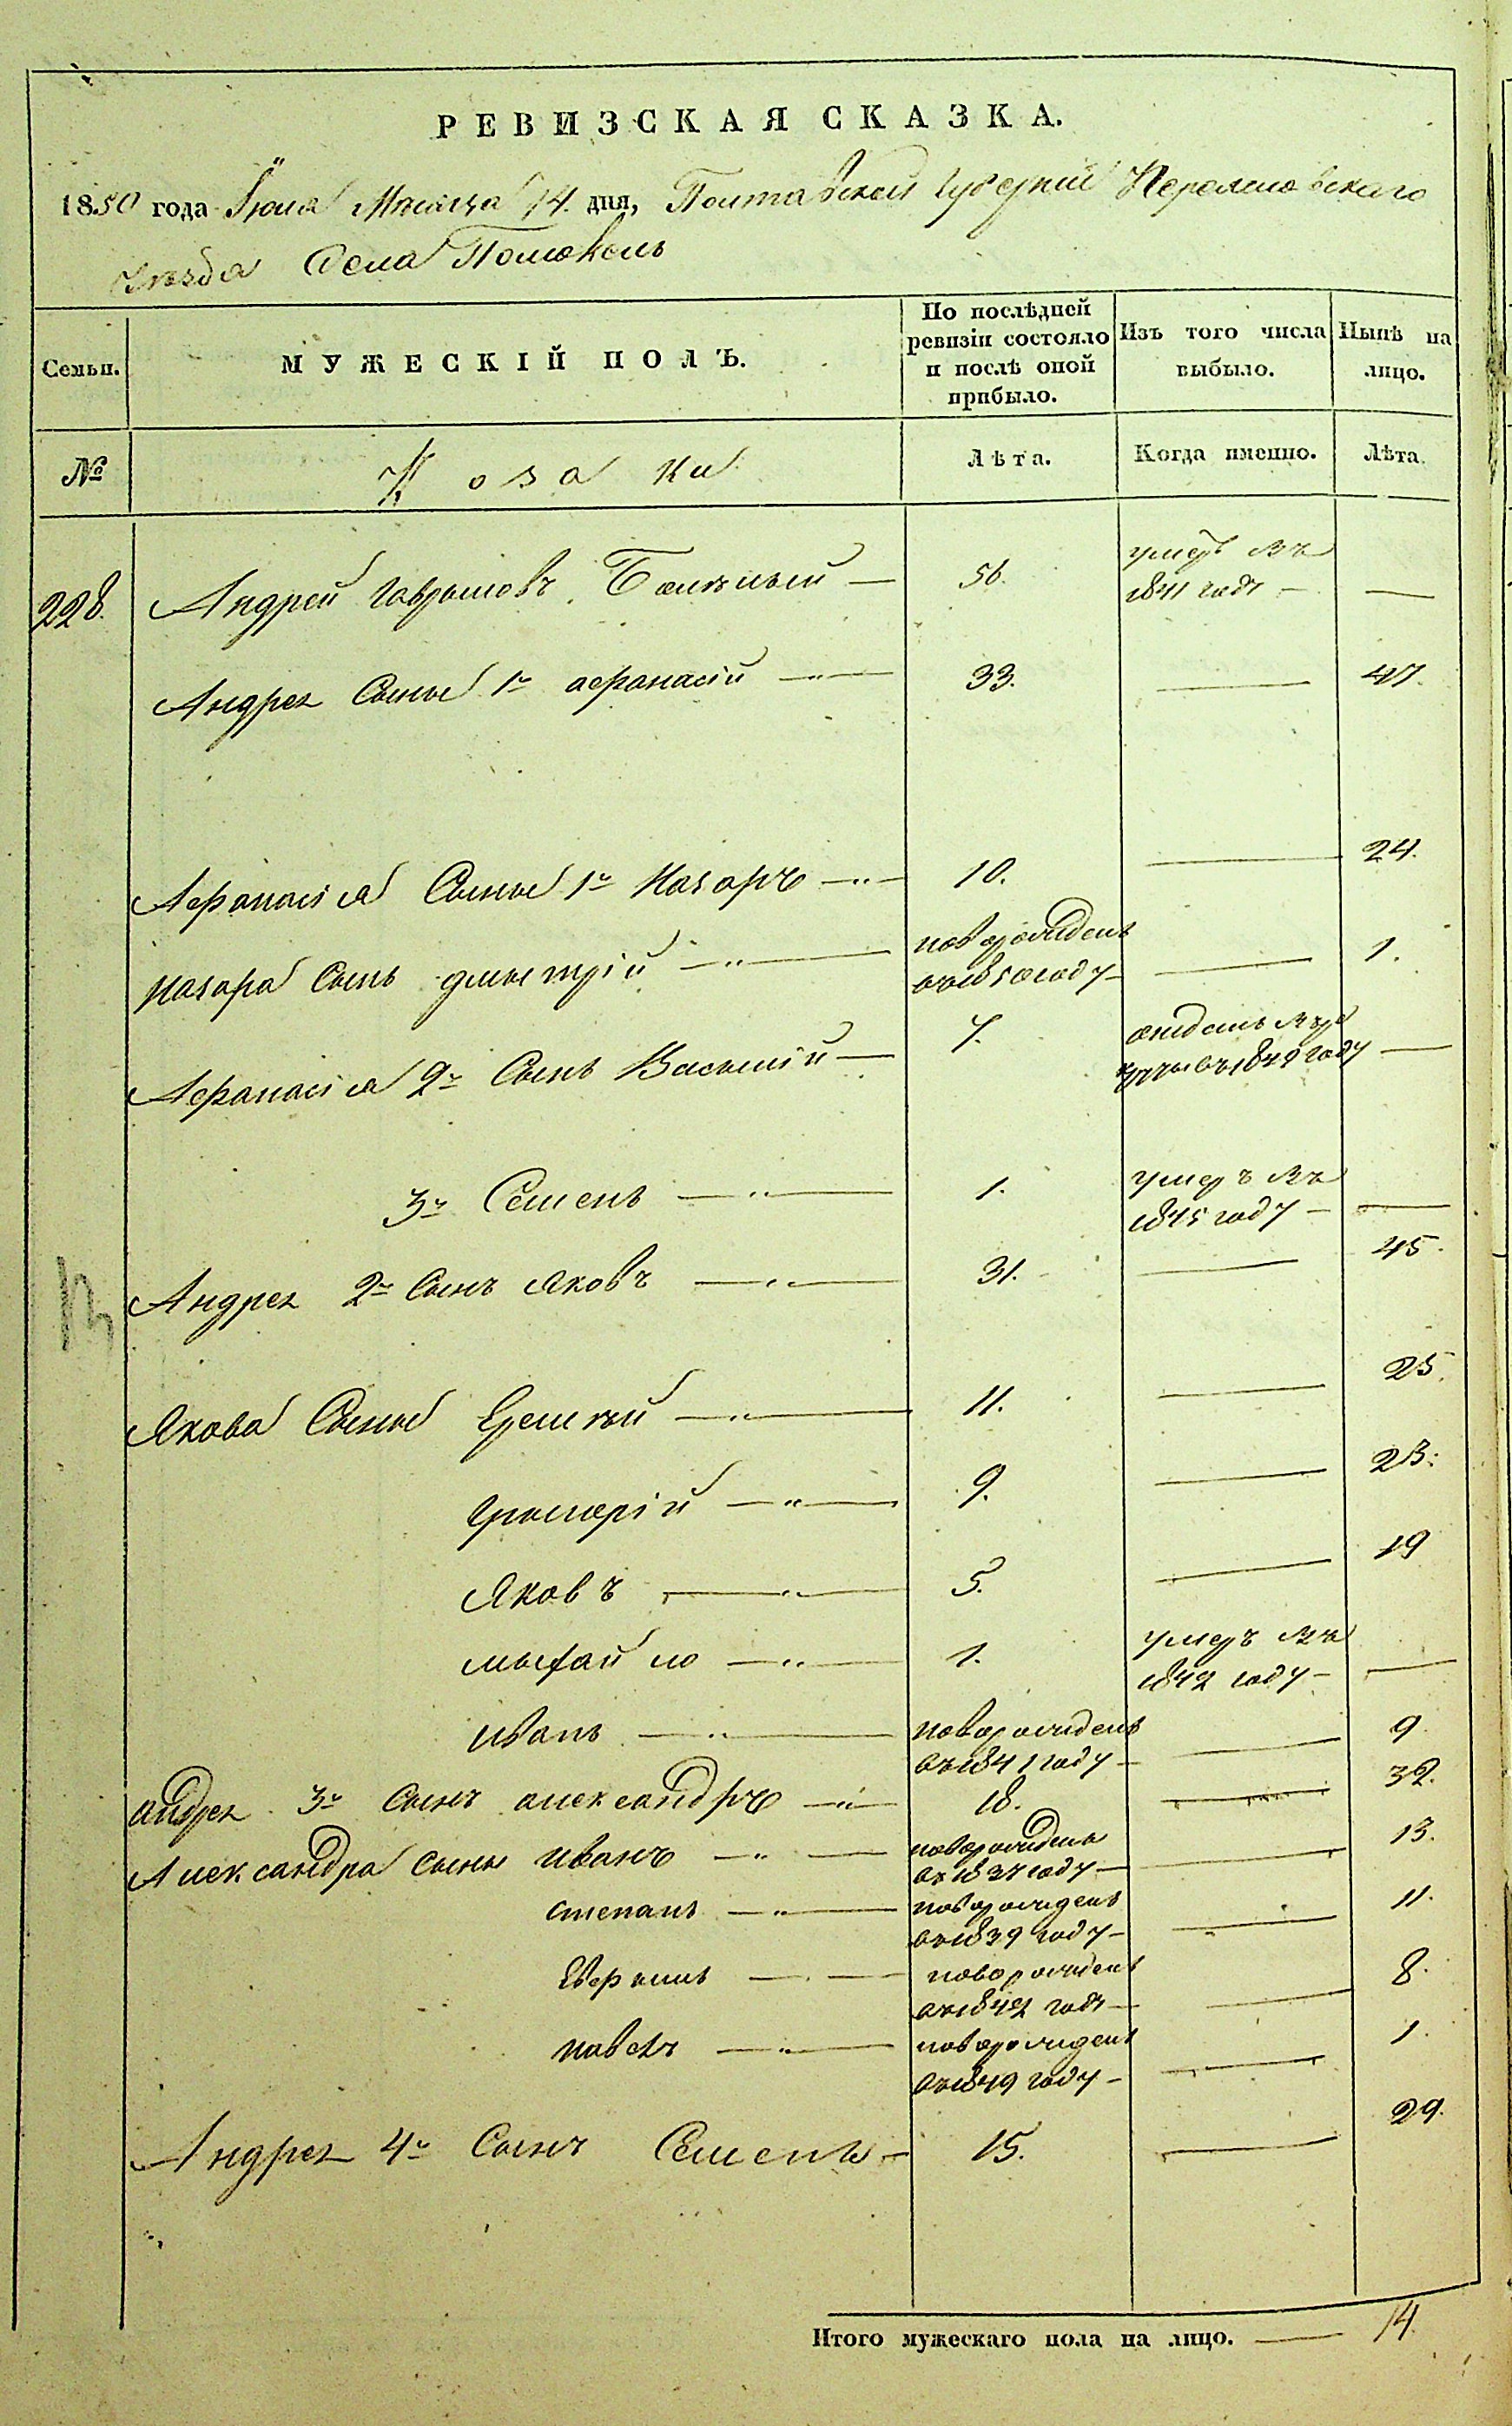 РЕВИЗСКАЯ СКАЗКА.
1850 года Iюня Месяца 14. дня, Полтавской губернiи Переяславскаго
Уезда Села Помоклъ
Семьи.
МУЖЕСКІЙ ПОЛЪ.
По послѣдней
ревизіи состояло
и послѣ оной
прибыло.
Изъ того числа
выбыло.
Нынѣ на
лицо.
№
Козаки
Лѣта.
Когда именно.
Лѣта.
228. Андрей Гавриловъ — 56. умеръ въ
1841 году — —
Андрея Сыны 1й афанасій — 33. — 47.
Афанасія Сыны 1й Назаръ — 10. — 24.
Назара Сынъ дмытрій — новорожденъ
въ 1850 году — — 1.
Афанасія 2й Сынъ Василій — 7. отданъ въ
въ 1849 году —
3й Семенъ — 1. умеръ въ
1845 году — —
Андрея 2й Сынъ Яковъ — 31. — 45.
Якова Сыны Еремѣй — 11. — 25.
Григорій — 9. — 23.
Яковъ — 5. — 19
мыхайло — 1. умеръ въ
1842 году — —
Иванъ — новорожденъ
въ 1841 году — — 9.
андрея 3й Сынъ александръ — 18. — 32.
Александра сыны иванъ — новорожденъ
въ 1837 году — — 13.
степанъ — новорожденъ
въ 1839 году — — 11.
— новорожденъ
въ 1842 году — — 8.
павелъ — новорожденъ
въ 1849 году — — 1.
Андрея 4й Сынъ Семенъ — 15. — 29.
Итого мужескаго пола на лицо. — 14.